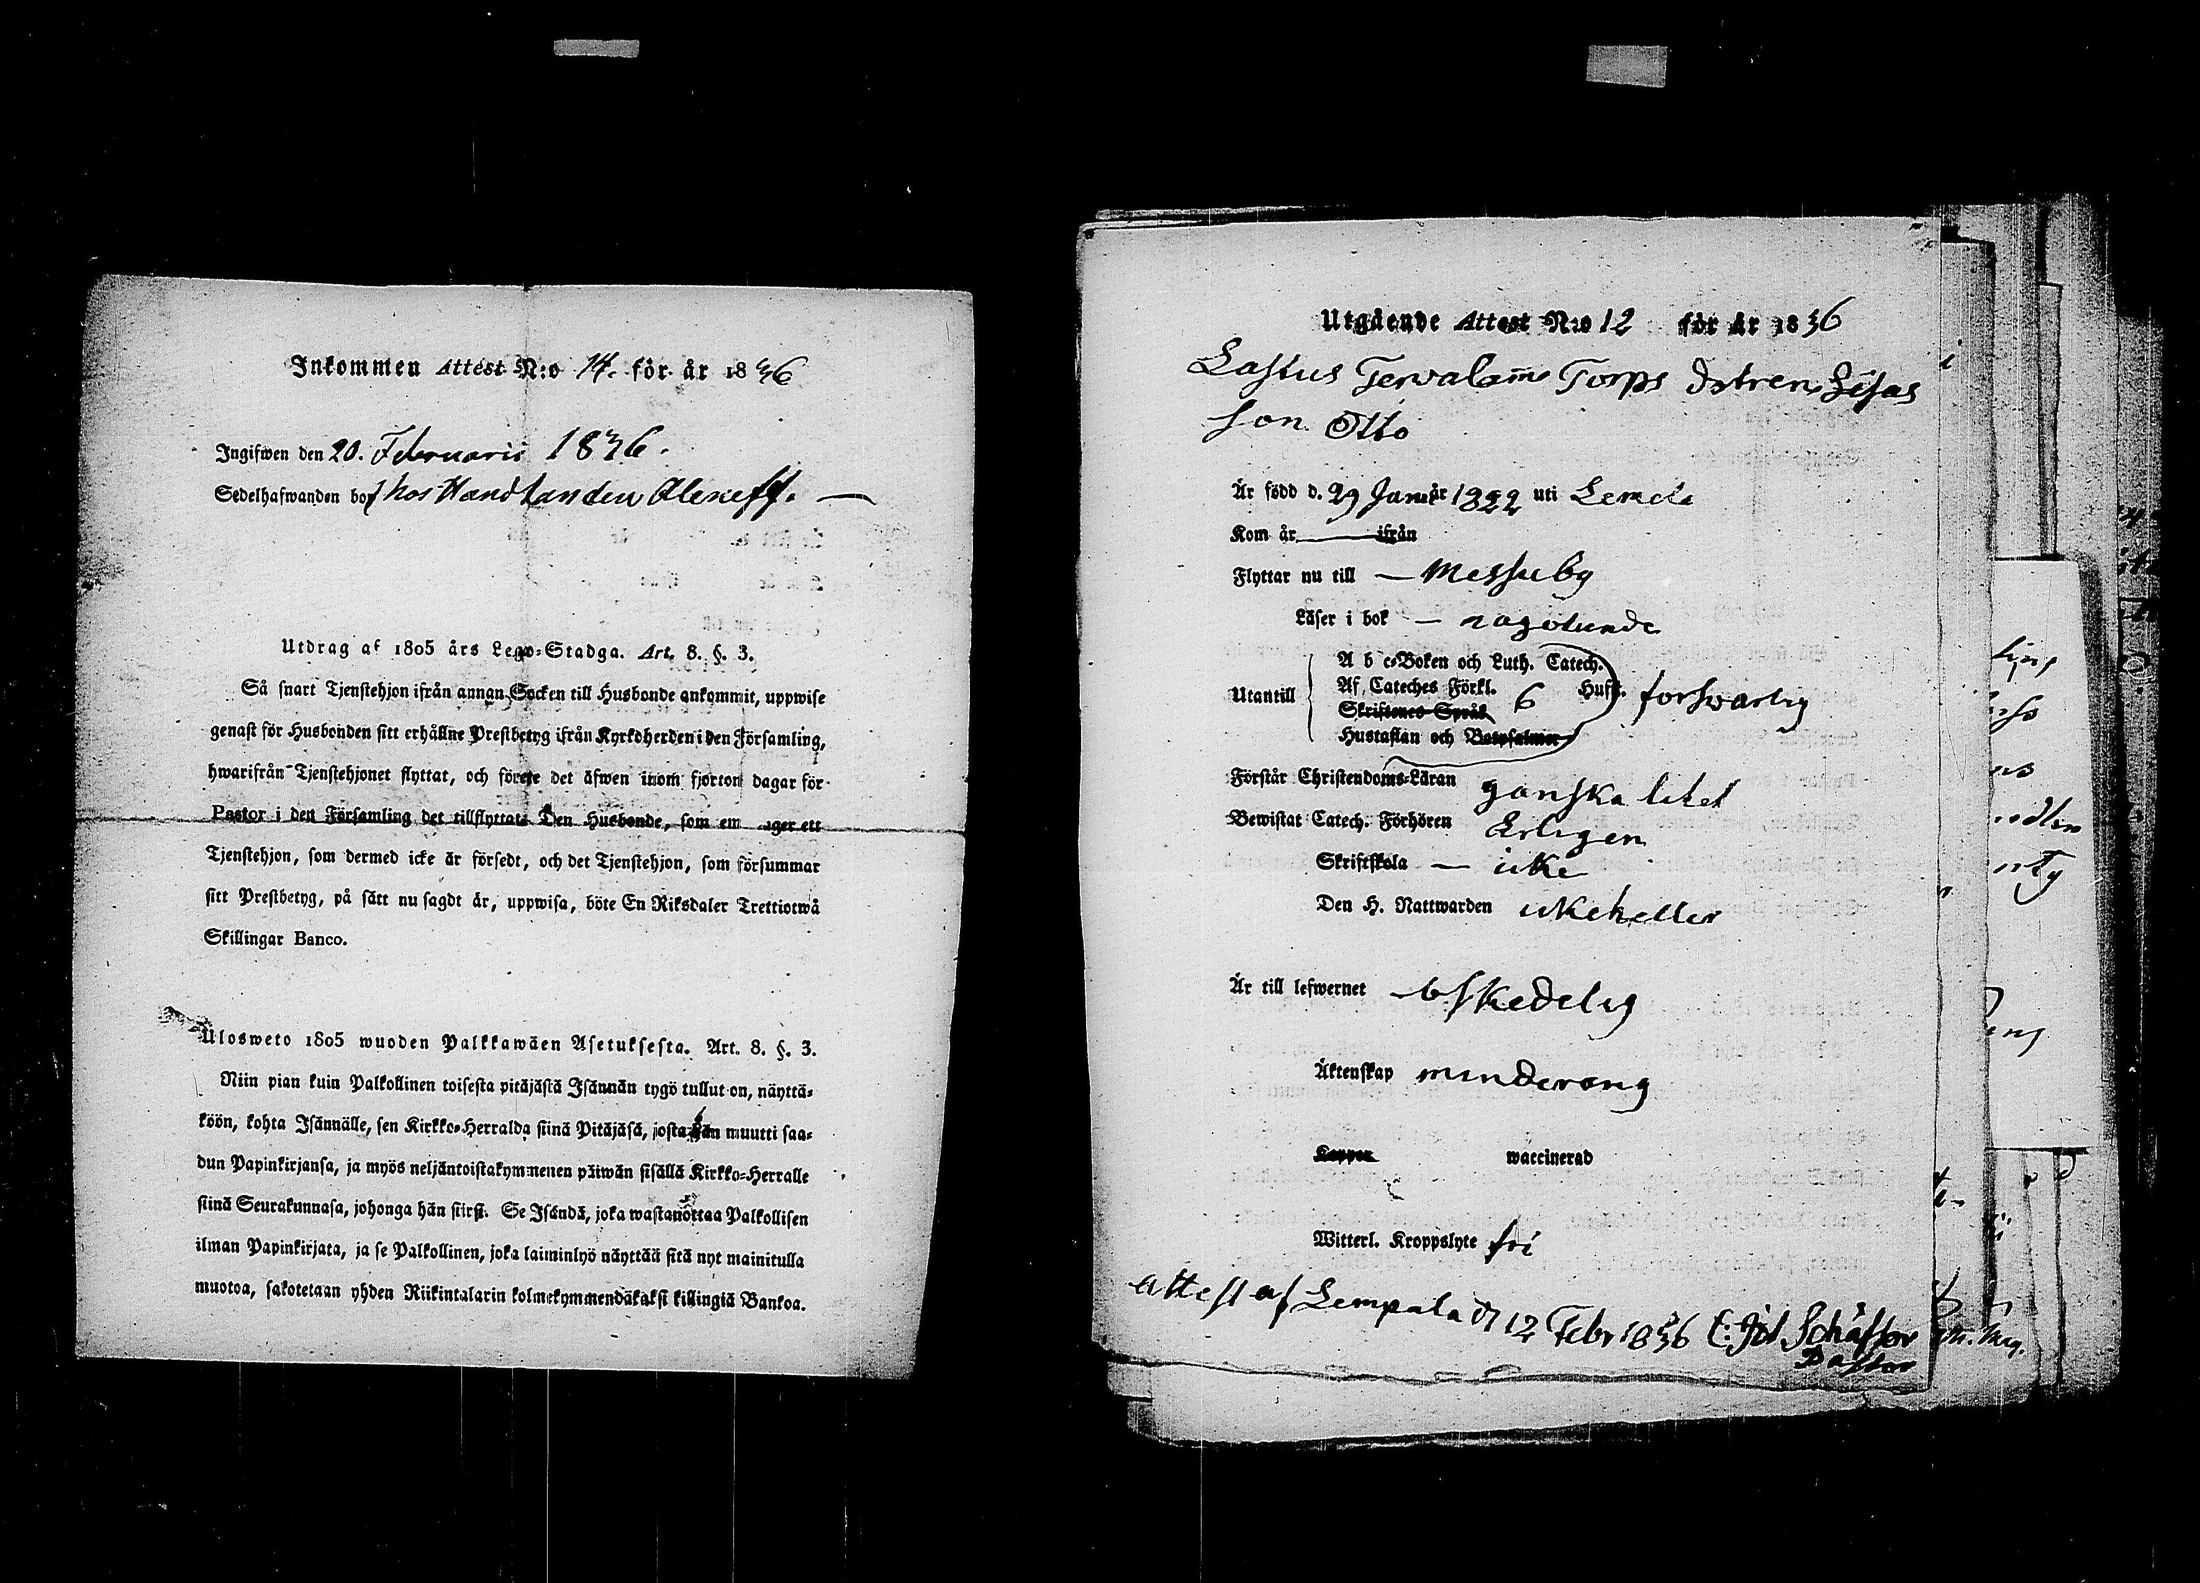 Inkommen Attest N:o 14. för år 1836
Ingifwen den 20. Februarii 1836.
Sedelhafwanden bor hos Handlanden Aleneff. —
Utdrag af 1805 års Lego-Stadga. Art. 8. §. 3.
Så snart Tjenstehjon ifrån annan Socken till Husbonde ankommit, uppwise
genast för Husbonden sitt erhållne Prestbetyg ifrån Kyrkoherden i den Församling,
hwarifrån Tjenstehjonet flyttat, och förete det äfwen inom fjorton dagar för
Pastor i den Församling det tillflyttat. Den Husbonde, som emottager ett
Tjenstehjon, som dermed icke är försedt, och det Tjenstehjon, som försummar
sitt Prestbetyg, på sätt nu sagdt är, uppwisa, böte En Riksdaler Trettiotwå
Skillingar Banco.
Ulosweto 1805 wuoden Palkkawäen Asetuksesta. Art. 8. §. 3.
Niin pian kuin Palkollinen toisesta pitäjästä Isännän tygö tullut on, näyttä-
köön, kohta Isännälle, sen Kirkko-Herralda siinä Pitäjäsä, josta hän muutti saa-
dun Papinkirjansa, ja myös neljäntoistakymmenen päiwän sisällä Kirkko-Herralle
siinä Seurakunnasa, johonga hän siirsi. Se Isändä, joka wastanottaa Palkollisen
ilman Papinkirjata, ja se Palkollinen, joka laiminlyö näyttää sitä nyt mainitulla
muotoa, sakotetaan yhden Riikintalarin kolmekymmendäkaksi killingiä Bankoa.
Utgående Attest N:o 12 för år 1836
Lastus Torps
son Otto
Är född d. 29 Januar 1822 uti
Kom år ifrån
Flyttar nu till — Messuby
Läser i bok — någolunda
Utantill
A b c-Boken och Luth. Catech.
Af Cateches Förkl. 6 Hufst. forswarlig
Skriftenes Språk
Hustaflan och Botpsalmer
Förstår Christendoms-Läran ganska litet
Bewistat Catech. Förhören Erligen
Skriftskola — icke
Den H. Nattwarden icke heller
Är till lefwernet beskedelig
Äktenskap minderarig
Koppor waccinerad
Witterl. Kroppslyte fri
attest af Lempala d 12 Febr 1836
Pastor